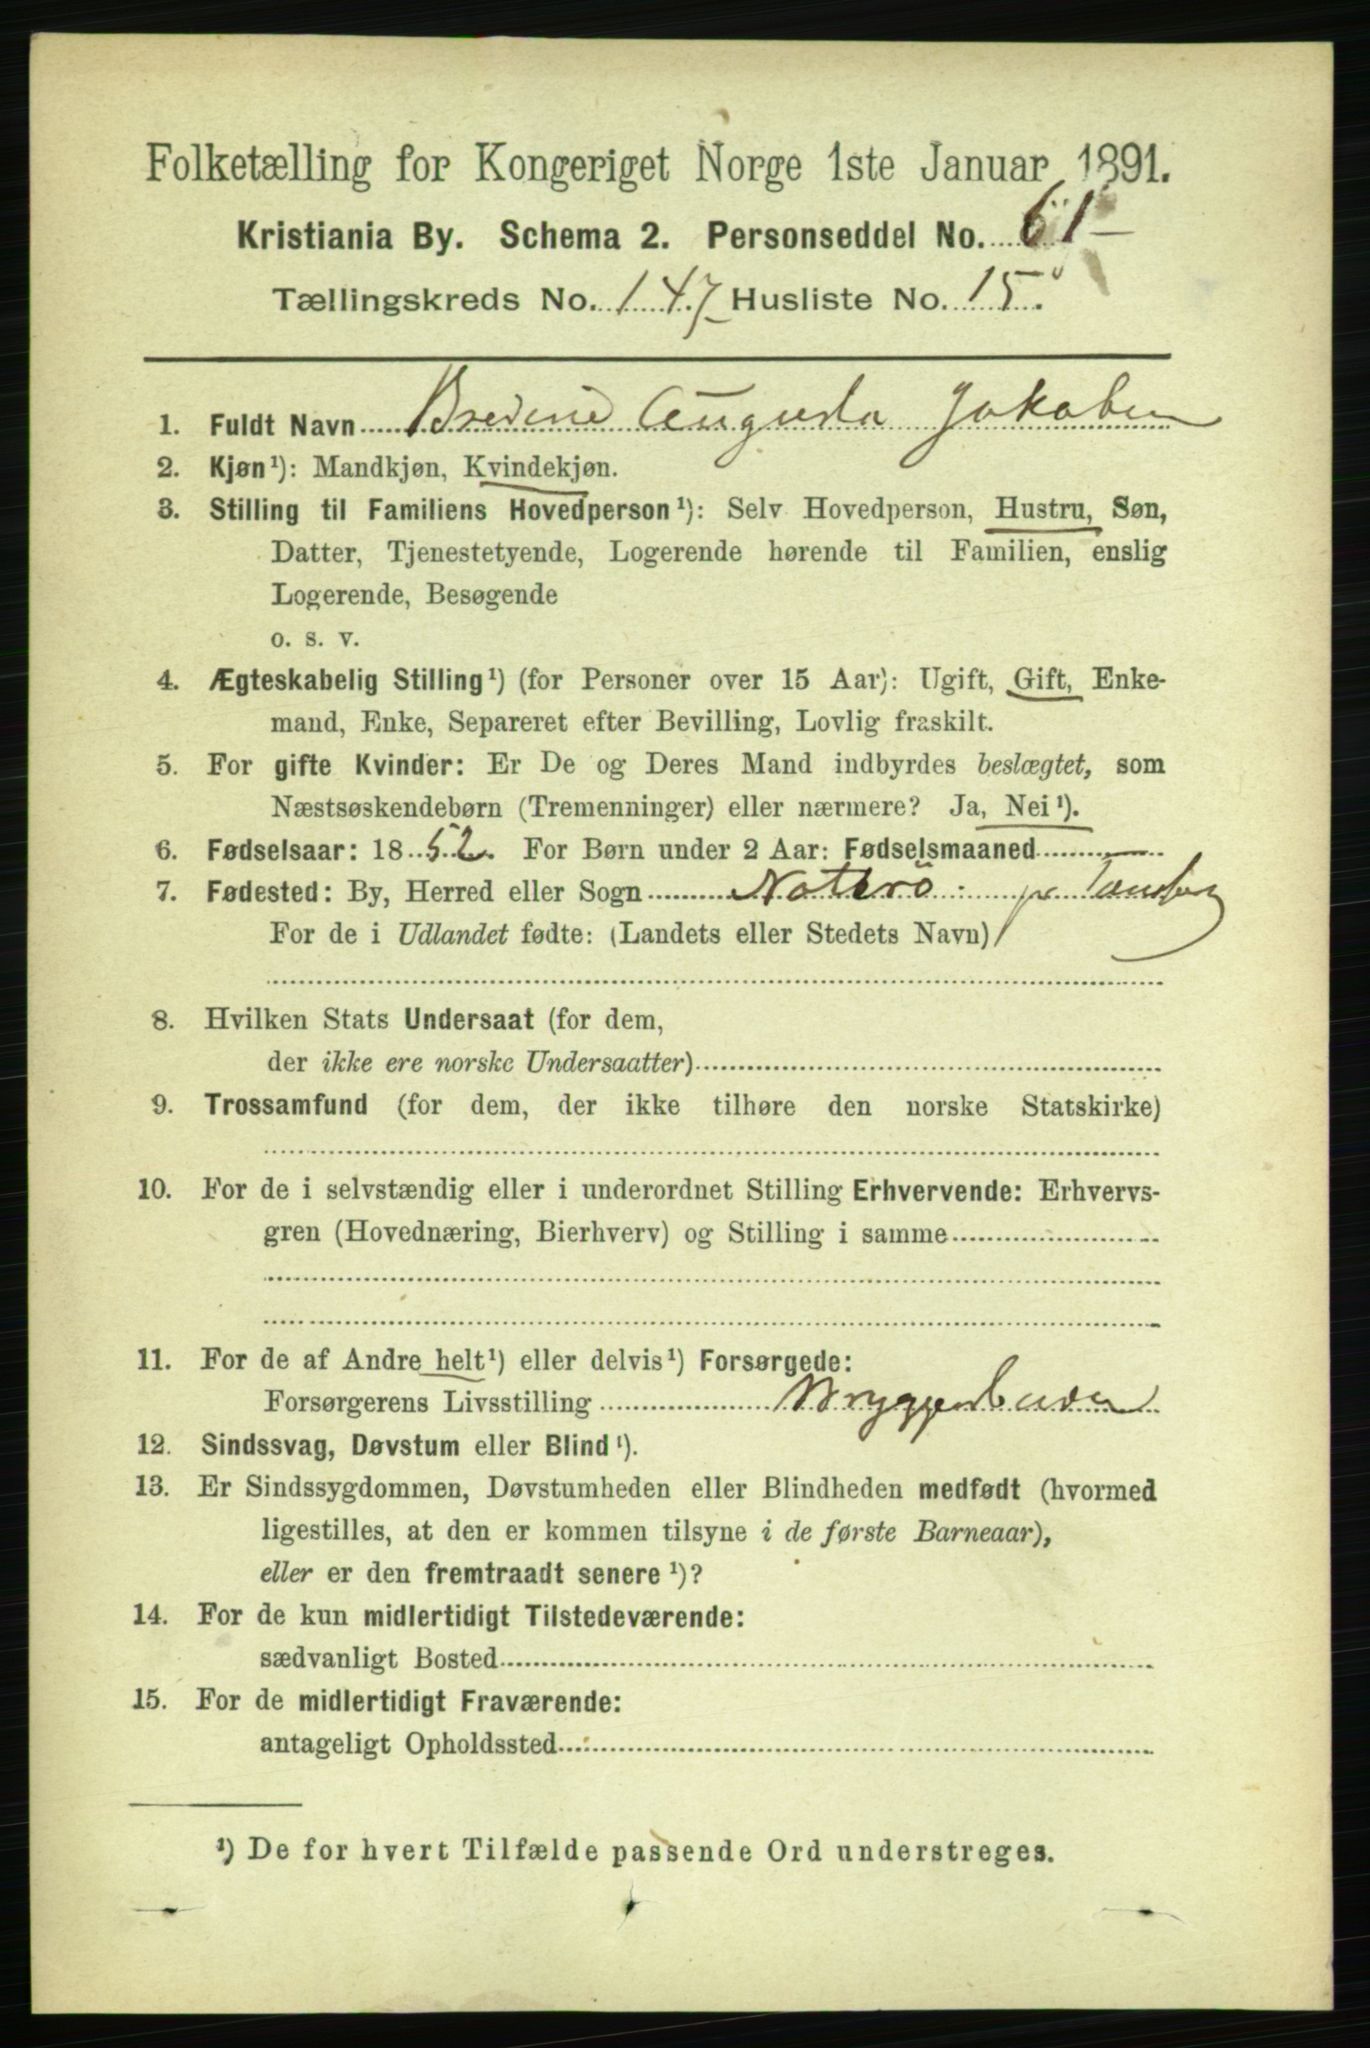 Folketælling for Kongeriget Norge 1ste Januar 1891.
Kristiania By. Schema 2. Personseddel No. 61
Tællingskreds No. 147 Husliste No. 15.
1. Fuldt Navn Bredine Augusta Jakobsen
2. Kjøn¹): Mandkjøn, Kvindekjøn.
3. Stilling til Familiens Hovedperson¹): Selv Hovedperson, Hustru, Søn,
Datter, Tjenestetyende, Logerende hørende til Familien, enslig
Logerende, Besøgende
o. s. v.
4. Ægteskabelig Stilling¹) (for Personer over 15 Aar): Ugift, Gift, Enke-
mand, Enke, Separeret efter Bevilling, Lovlig fraskilt.
5. For gifte Kvinder: Er De og Deres Mand indbyrdes beslægtet, som
Næstsøskendebørn (Tremenninger) eller nærmere? Ja, Nei¹).
6. Fødselsaar: 1852. For Børn under 2 Aar: Fødselsmaaned
7. Fødested: By, Herred eller Sogn Notterö pr Tønsberg
For de i Udlandet fødte: (Landets eller Stedets Navn)
8. Hvilken Stats Undersaat (for dem,
der ikke ere norske Undersaatter)
9. Trossamfund (for dem, der ikke tilhøre den norske Statskirke)
10. For de i selvstændig eller i underordnet Stilling Erhvervende: Erhvervs-
gren (Hovednæring, Bierhverv) og Stilling i samme
11. For de af Andre helt¹) eller delvis¹) Forsørgede:
Forsørgerens Livsstilling
12. Sindssvag, Døvstum eller Blind¹).
13. Er Sindssygdommen, Døvstumheden eller Blindheden medfødt (hvormed
ligestilles, at den er kommen tilsyne i de første Barneaar),
eller er den fremtraadt senere¹)?
14. For de kun midlertidigt Tilstedeværende:
sædvanligt Bosted
15. For de midlertidigt Fraværende:
antageligt Opholdssted
¹) De for hvert Tilfælde passende Ord understreges.